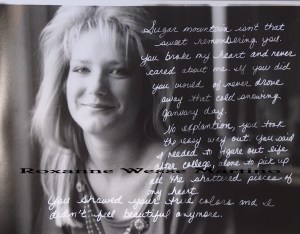 Sugar mountain isn't that
sweet remembering you.
You broke my heart and never
cared about me. If you did
you would of never drove
away that cold snowing
January day.
No explantion, you took
the easy way out. You said
I needed to figure out life
after college, alone to pick up
all the shattered pieces of
my heart.
Roxanne Martino
You shawed your true colors and I
didn't feel beautiful anymore.